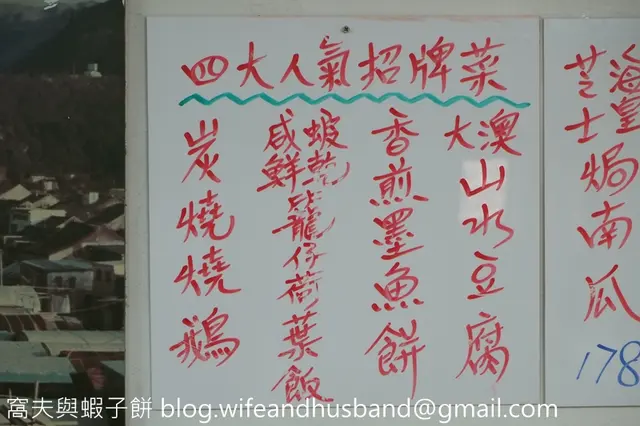 四大人氣招牌菜
大澳山水豆腐
香煎墨魚餅
咸鮮蝦乾龍仔荷葉飯
炭燒燒鵝
海皇芝士焗南瓜
178
窩夫與蝦子餅 blog.wifeandhusband@gmail.com